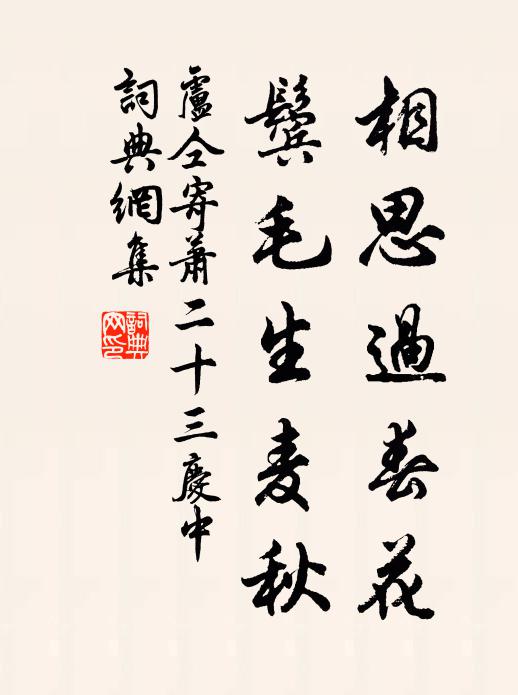 相思過春花
鬓毛生麦秋
盧仝寄蕭二十三慶中
詞典網集
詞典網印